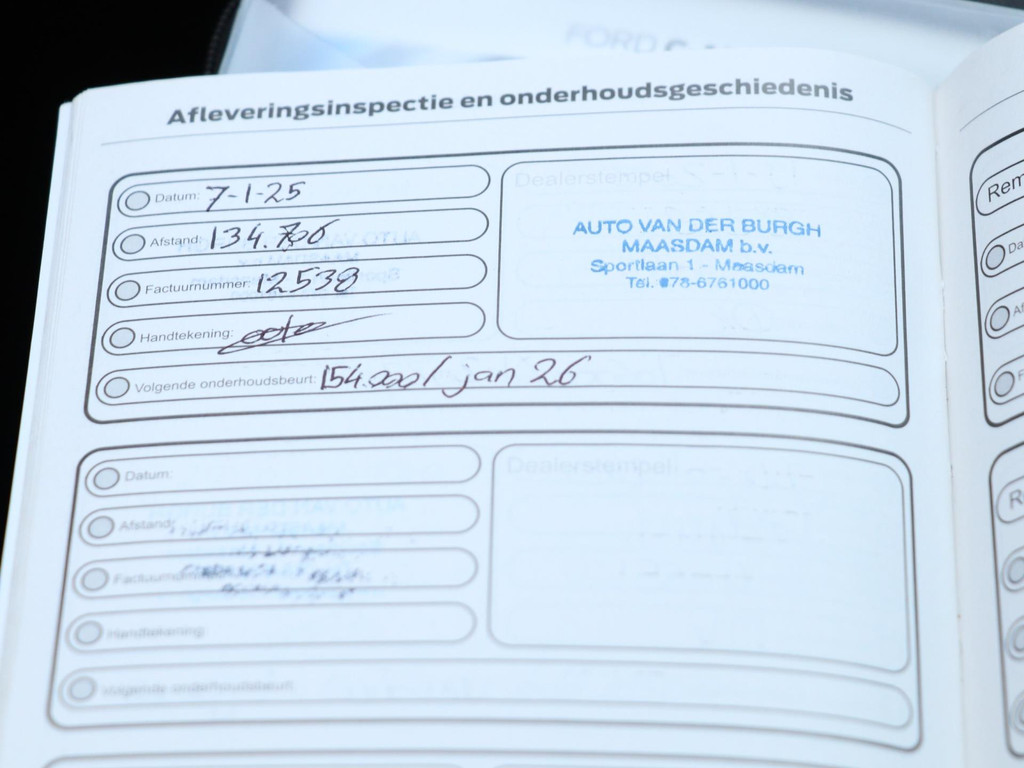 FORD
Afleveringsinspectie en onderhoudsgeschiedenis
Datum: 7-1-25
Afstand:
Factuurnummer: 12538
Handtekening:
Volgende onderhoudsbeurt: 154.000 / jan 26
Dealerstempel
AUTO VAN DER BURGH
MAASDAM b.v.
Sportlaan 1 - Maasdam
Tel. 078-6761000
Datum:
Afstand:
Handtekening:
Volgende onderhoudsbeurt:
Dealerstempel
Rem
Da
Af
F
R